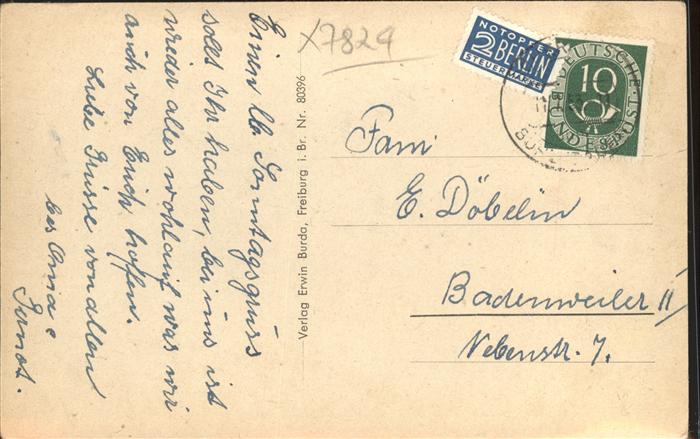 Einen lb Sonntagsgruss
sollt Ihr haben, bei uns ist
wieder alles wohlauf was wir
auch von Euch hoffen.
Liebe Grüsse von allen
bes Oma
Verlag Erwin Burda, Freiburg i. Br. Nr. 80396
X7829
NOTOPFER
2 BERLIN
STEUERMARKE
DEUTSCHE
BUNDESPOST
10
Fam
E. Döbelin
Badenweiler II
Nebenstr. 7.